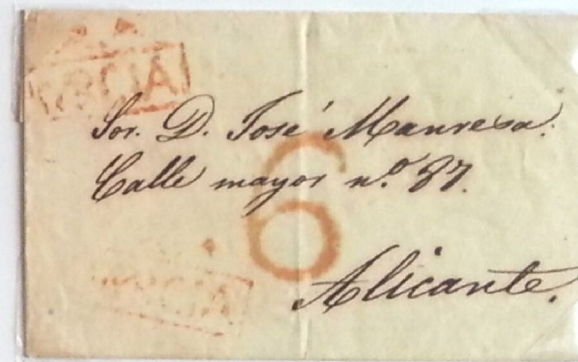 Sor. D. José Manresa.
Calle mayor nº. 37.
6
Alicante.